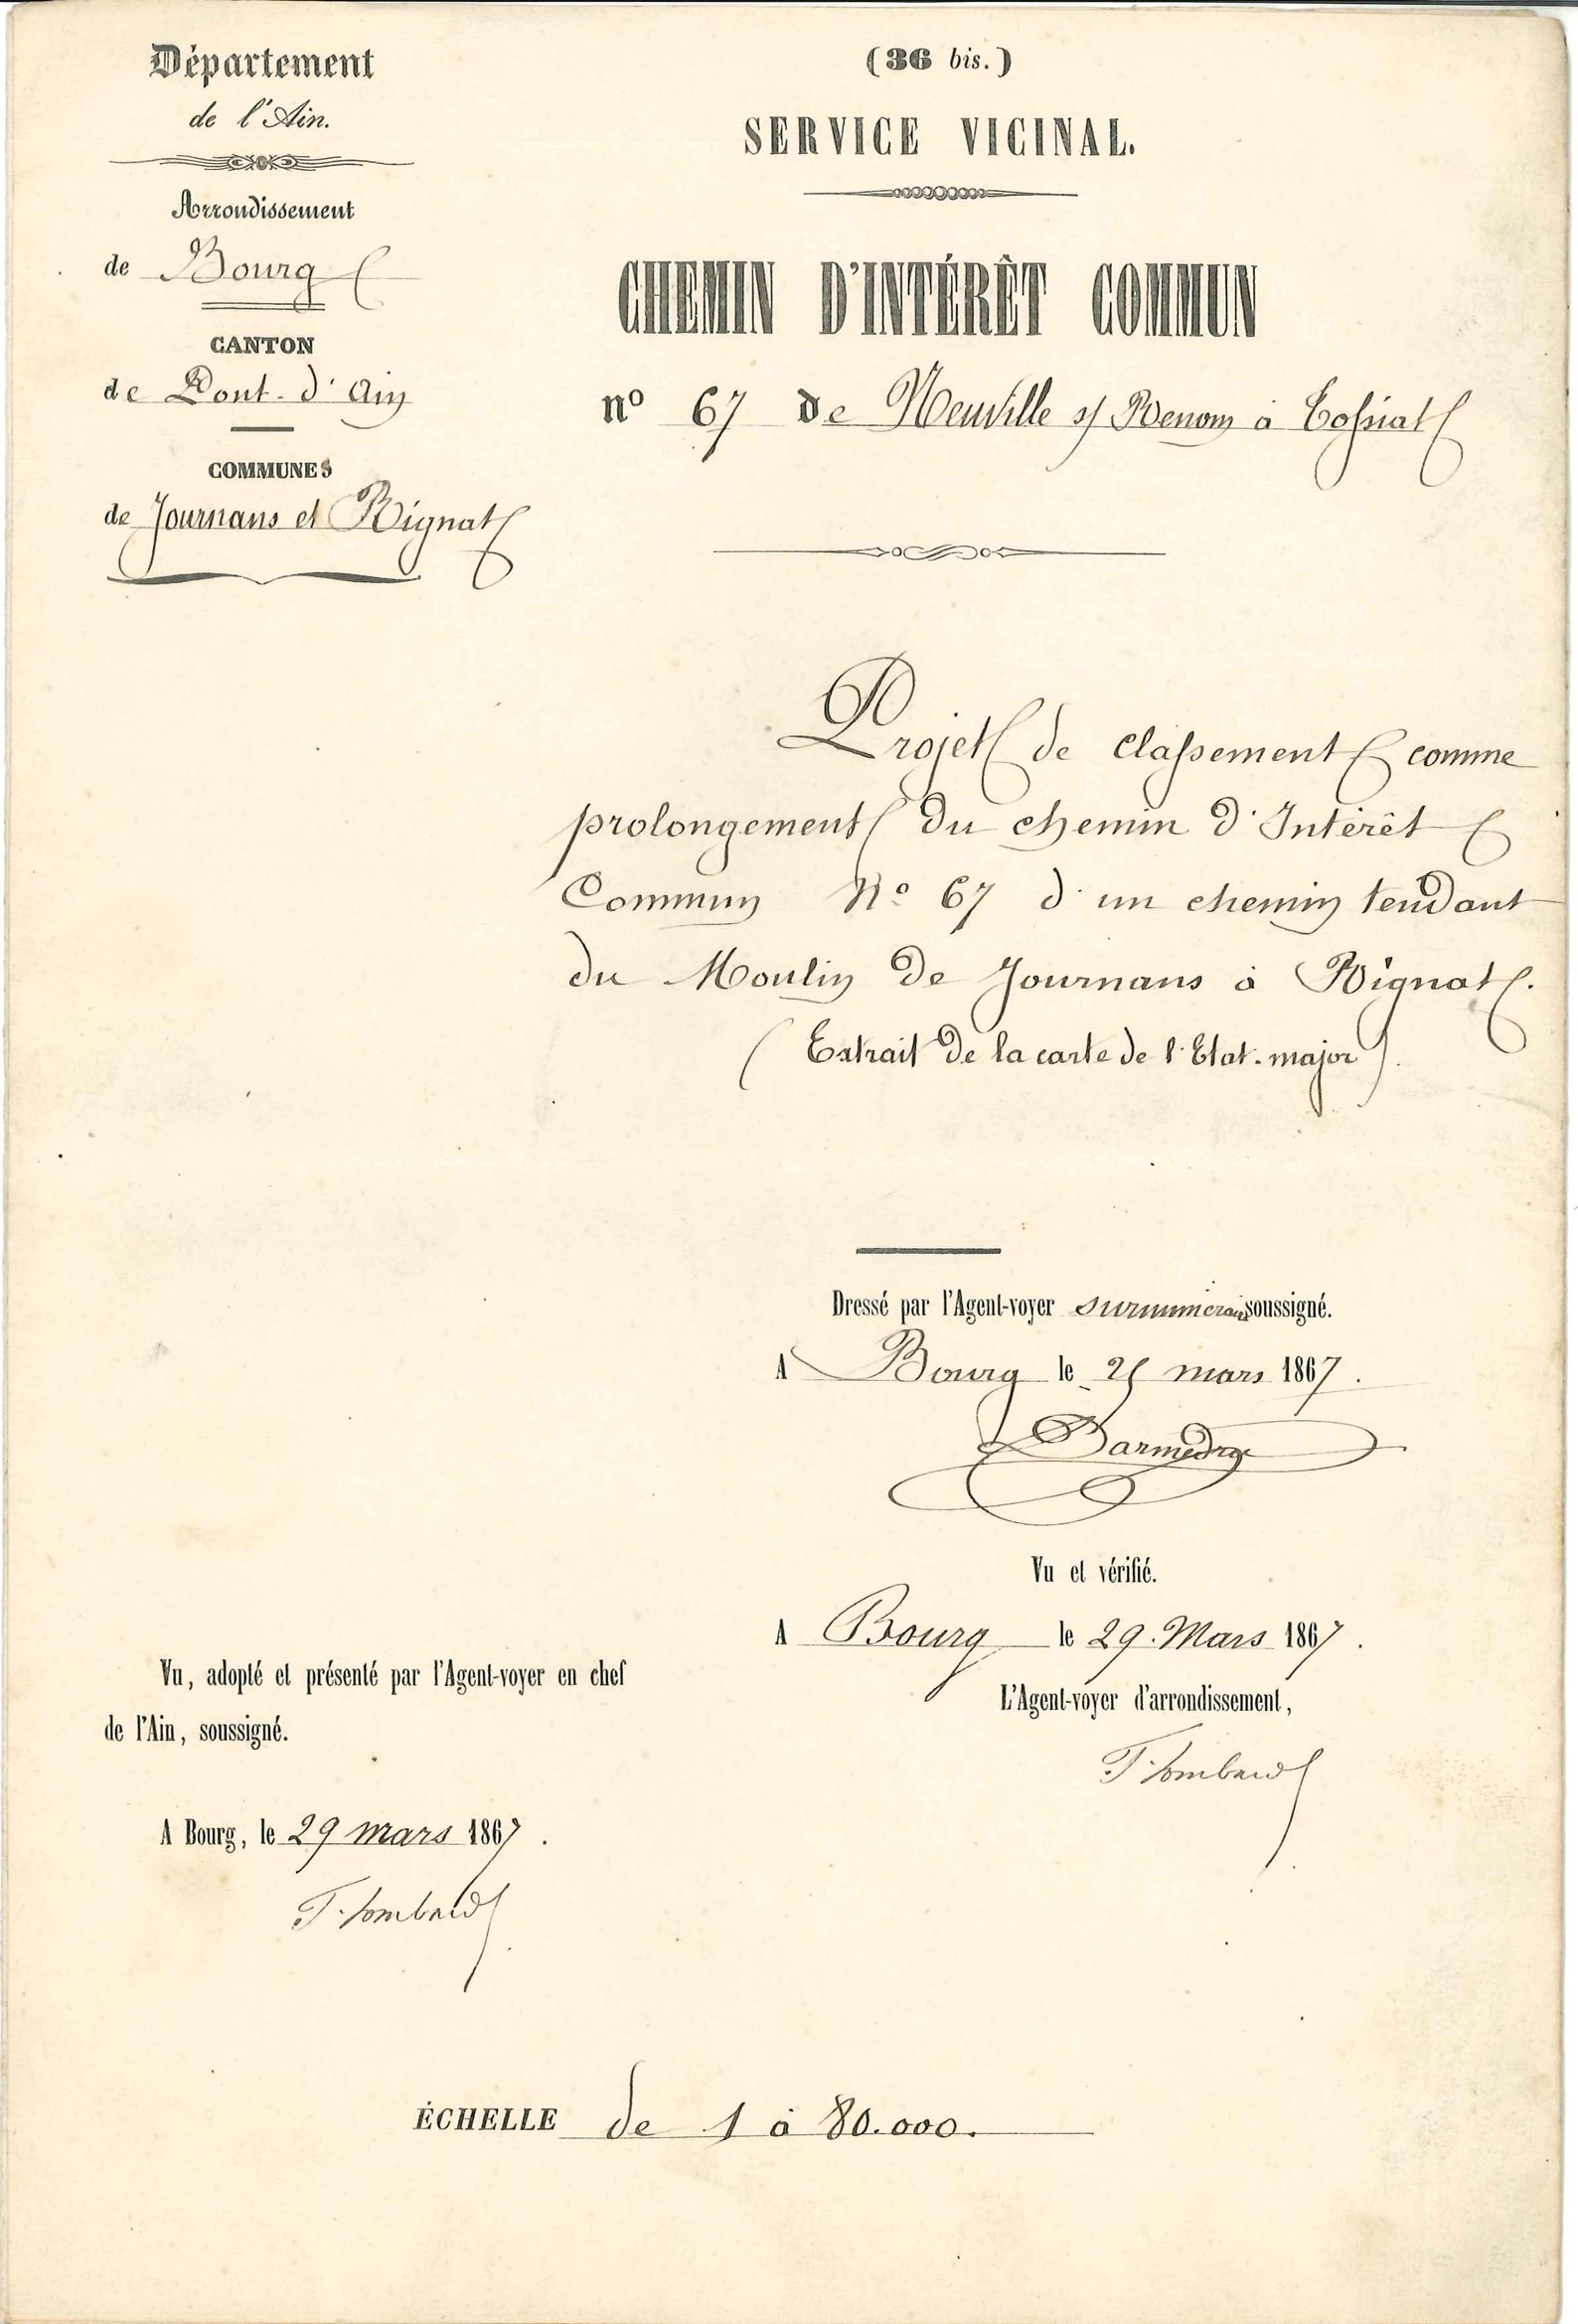 Département
de l'Ain.
Arrondissement
de Bourg
CANTON
de Pont-d'Ain
COMMUNES
de Journans et Rignat
(36 bis.)
SERVICE VICINAL.
CHEMIN D'INTÉRÊT COMMUN
n° 67 de Neuville s/ Renom à Tossiat
Projet de classement comme
prolongement du chemin d'Intérêt
Commun N° 67 d'un chemin tendant
du Moulin de Journans à Rignat.
(Extrait de la carte de l'Etat-major).
Dressé par l'Agent-voyer surnuméraire soussigné.
A Bourg le mars 1867.
Vu et vérifié.
A Bourg le 29 Mars 1867.
L'Agent-voyer d'arrondissement,
T. Lombard
Vu, adopté et présenté par l'Agent-voyer en chef
de l'Ain, soussigné.
A Bourg, le 29 mars 1867.
T. Lombard
ÉCHELLE de 1 à 80.000.